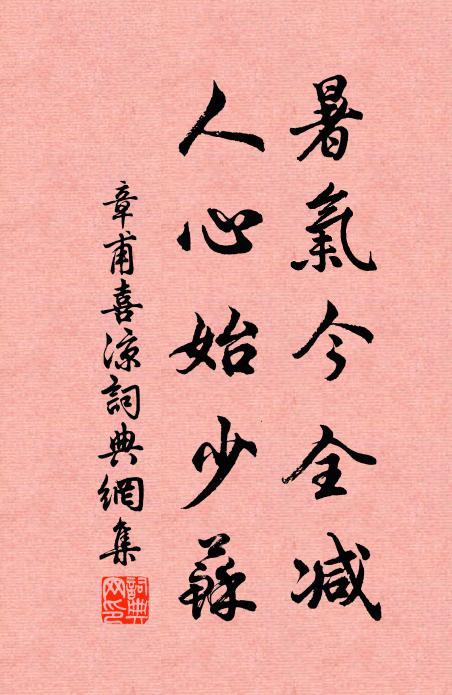 暑氣今全減
人心始少蘇
章甫喜涼詞典網集
詞典網印